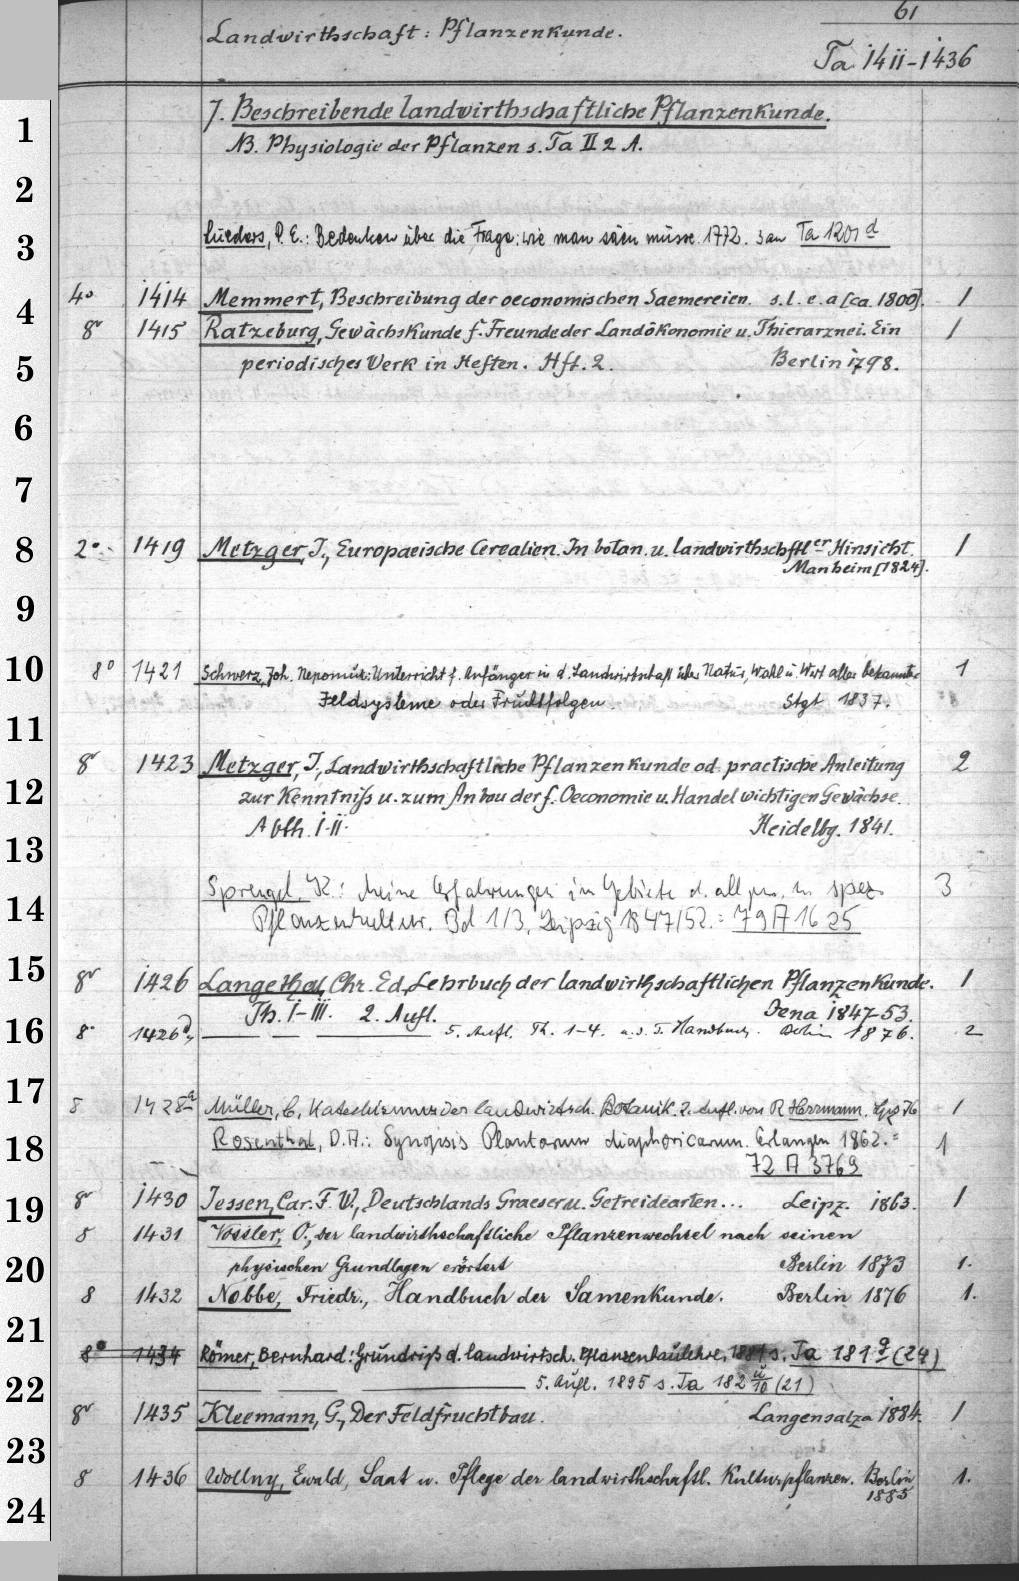 61
Landwirthschaft: Pflanzenkunde.
Ta 1411-1436
1
7. Beschreibende landwirthschaftliche Pflanzenkunde.
NB. Physiologie der Pflanzen s. Ta II 2 A.
2
3
Lueders, P. E.: Bedenken über die Frage: wie man säen müsse. 1772. 3 an Ta 1201 d
4
4o 1414 Memmert, Beschreibung der oeconomischen Saemereien. s. l. e. a [ca. 1800]. 1
8v 1415 Ratzeburg, Gewächskunde f. Freunde der Landökonomie u. Thierarznei. Ein 1
5
periodisches Werk in Heften. Hft. 2. Berlin 1798.
6
7
8
2o 1419 Metzger, J., Europaeische Cerealien. In botan. u. landwirthschftler Hinsicht. 1
Manheim [1824].
9
10
8o 1421 Schwerz, Joh. Nepomuk: Unterricht f. Anfänger in d. Landwirtschaft über Natur, Wahl u. Wert aller bekannter 1
Feldsysteme oder Fruchtfolgen. Stgt 1837.
11
8v 1423 Metzger, J., Landwirthschaftliche Pflanzenkunde od. practische Anleitung 2
12
zur Kenntniß u. zum Anbau der f. Oeconomie u. Handel wichtigen Gewächse.
Abth. I-II. Heidelbg. 1841.
13
14
Sprengel, K.: Meine Erfahrungen im Gebiete d. allgem. u. spez. 3
Pflanzenkultur. Bd 1/3, Leipzig 1847/52. = 79 A 1625
15
8v 1426 Langethal, Chr. Ed., Lehrbuch der landwirthschaftlichen Pflanzenkunde. 1
Th. I-III. 2. Aufl. Jena 1847-53.
16
8 1426a, — — — 5. Aufl. Th. 1-4. u. d. T. Handbuch. Berlin 1876. 2
17
8 1428a Müller, C, Katechismus der landwirtsch. Botanik. 2. Aufl. von R Herrmann. Lpz 76 1
18
Rosenthal, D. A.: Synopsis Plantarum diaphoricarum. Erlangen 1862. = 1
72 A 3769
19
8v 1430 Jessen, Car. F. W., Deutschlands Graeser u. Getreidearten... Leipz. 1863. 1
8 1431 Vossler, O., der landwirthschaftliche Pflanzenwechsel nach seinen
20
physischen Grundlagen erörtert Berlin 1873 1.
8 1432 Nobbe, Friedr., Handbuch der Samenkunde. Berlin 1876 1.
21
8o 1434 Römer, Bernhard: Grundriß d. landwirtsch. Pflanzenbaulehre. 1881 s. Ta 181 g (24)
22
— — — 5. Aufl. 1895 s. Ta 182 u/10 (21)
8v 1435 Kleemann, G., Der Feldfruchtbau. Langensalza 1884. 1
23
8 1436 Wollny, Ewald, Saat u. Pflege der landwirthschaftl. Kulturpflanzen. Berlin 1.
1885
24